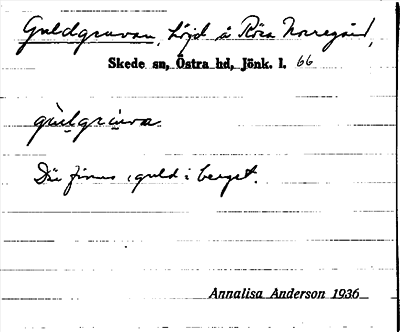 Guldgruvan, höjd å Röra Norregård,
Skede sn, Östra hd, Jönk. l. 66
gùlgrùva
Där finns guld i berget.
Annalisa Anderson 1936